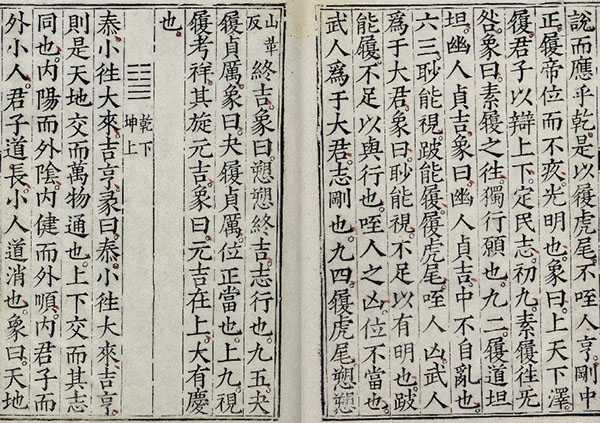 說而應乎乾。是以履虎尾。不咥人亨。剛中
正。履帝位而不疚。光明也。象曰。上天下澤。
履。君子以辯上下。定民志。初九。素履徃。无
咎。象曰。素履之徃。獨行願也。九二。履道坦
坦。幽人貞吉。象曰。幽人貞吉。中不自亂也。
六三。眇能視。跛能履。履虎尾。咥人凶。武人
爲于大君。象曰。眇能視。不足以有明也。跛
能履。不足以與行也。咥人之凶。位不當也。
武人爲于大君。志剛也。九四。履虎尾。愬愬
山革反終吉。象曰。愬愬終吉。志行也。九五。夬
履貞厲。象曰。夬履貞厲。位正當也。上九。視
履考祥。其旋元吉。象曰。元吉在上。大有慶
也。
䷊乾下坤上
泰。小徃大來。吉亨。彖曰。泰。小徃大來。吉亨。
則是天地交而萬物通也。上下交而其志
同也。內陽而外陰。內健而外順。內君子而
外小人。君子道長。小人道消也。象曰。天地